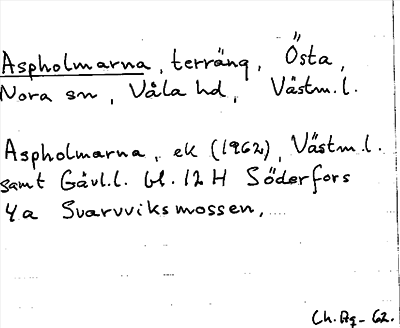 Aspholmarna, terräng, Östa,
Nora sn, Våla hd, Västm.l.
Aspholmarna, ek (1962), Västm.l.
samt Gävl.l. bl. 12 H Söderfors
4a Svarvviksmossen,
Ch. Ag - 62.